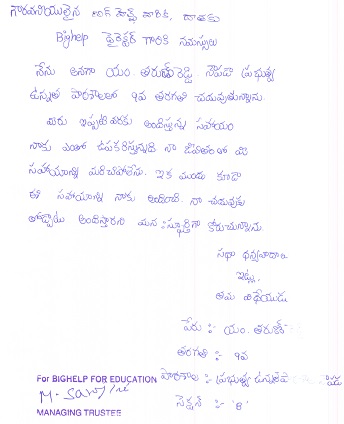 గౌరవనీయులైన
Bighelp డైరెక్టర్ గారికి నమస్సులు
నేను అనగా యం. తరుణ్ రెడ్డి, నౌపడా ప్రభుత్వ
ఉన్నత పాఠశాలలో 9వ తరగతి చదువుతున్నాను.
మీరు ఇప్పటివరకు అందిస్తున్న సహాయం
నాకు ఎంతో ఉపకరిస్తున్నది నా జీవితంలో మీ
సహాయాన్ని మరిచిపోలేను. ఇక ముందు కూడా
ఈ సహాయాన్ని నాకు అందించి నా చదువుకు
తోడ్పాటు అందిస్తారని మనఃస్ఫూర్తిగా కోరుచున్నాను.
సభా ధన్యవాదాలు
ఇట్లు,
తమ విధేయుడు
పేరు :- యం. తరుణ్
తరగతి :- 9వ
For BIGHELP FOR EDUCATION
పాఠశాల :- ప్రభుత్వ
సెక్షన్ :- 'B'
MANAGING TRUSTEE